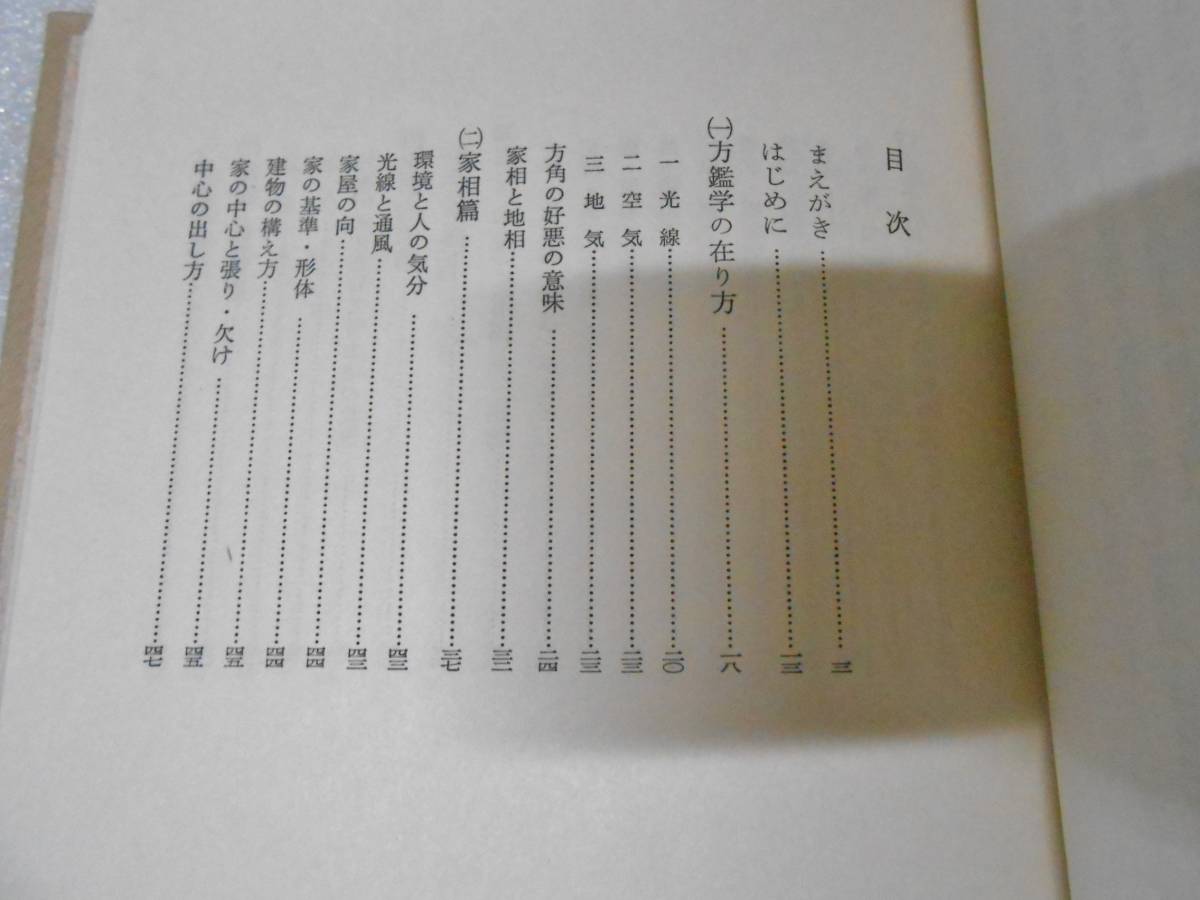 目次
まえがき……三
はじめに……一三
㈠方鑑学の在り方……一八
一 光線……二〇
二 空気……二三
三 地気……二三
方角の好悪の意味……二四
家相と地相……三二
㈡家相篇……三七
環境と人の気分……四三
光線と通風……四三
家屋の向……四三
家の基準・形体……四四
建物の構え方……四四
家の中心と張り・欠け……四五
中心の出し方……四七